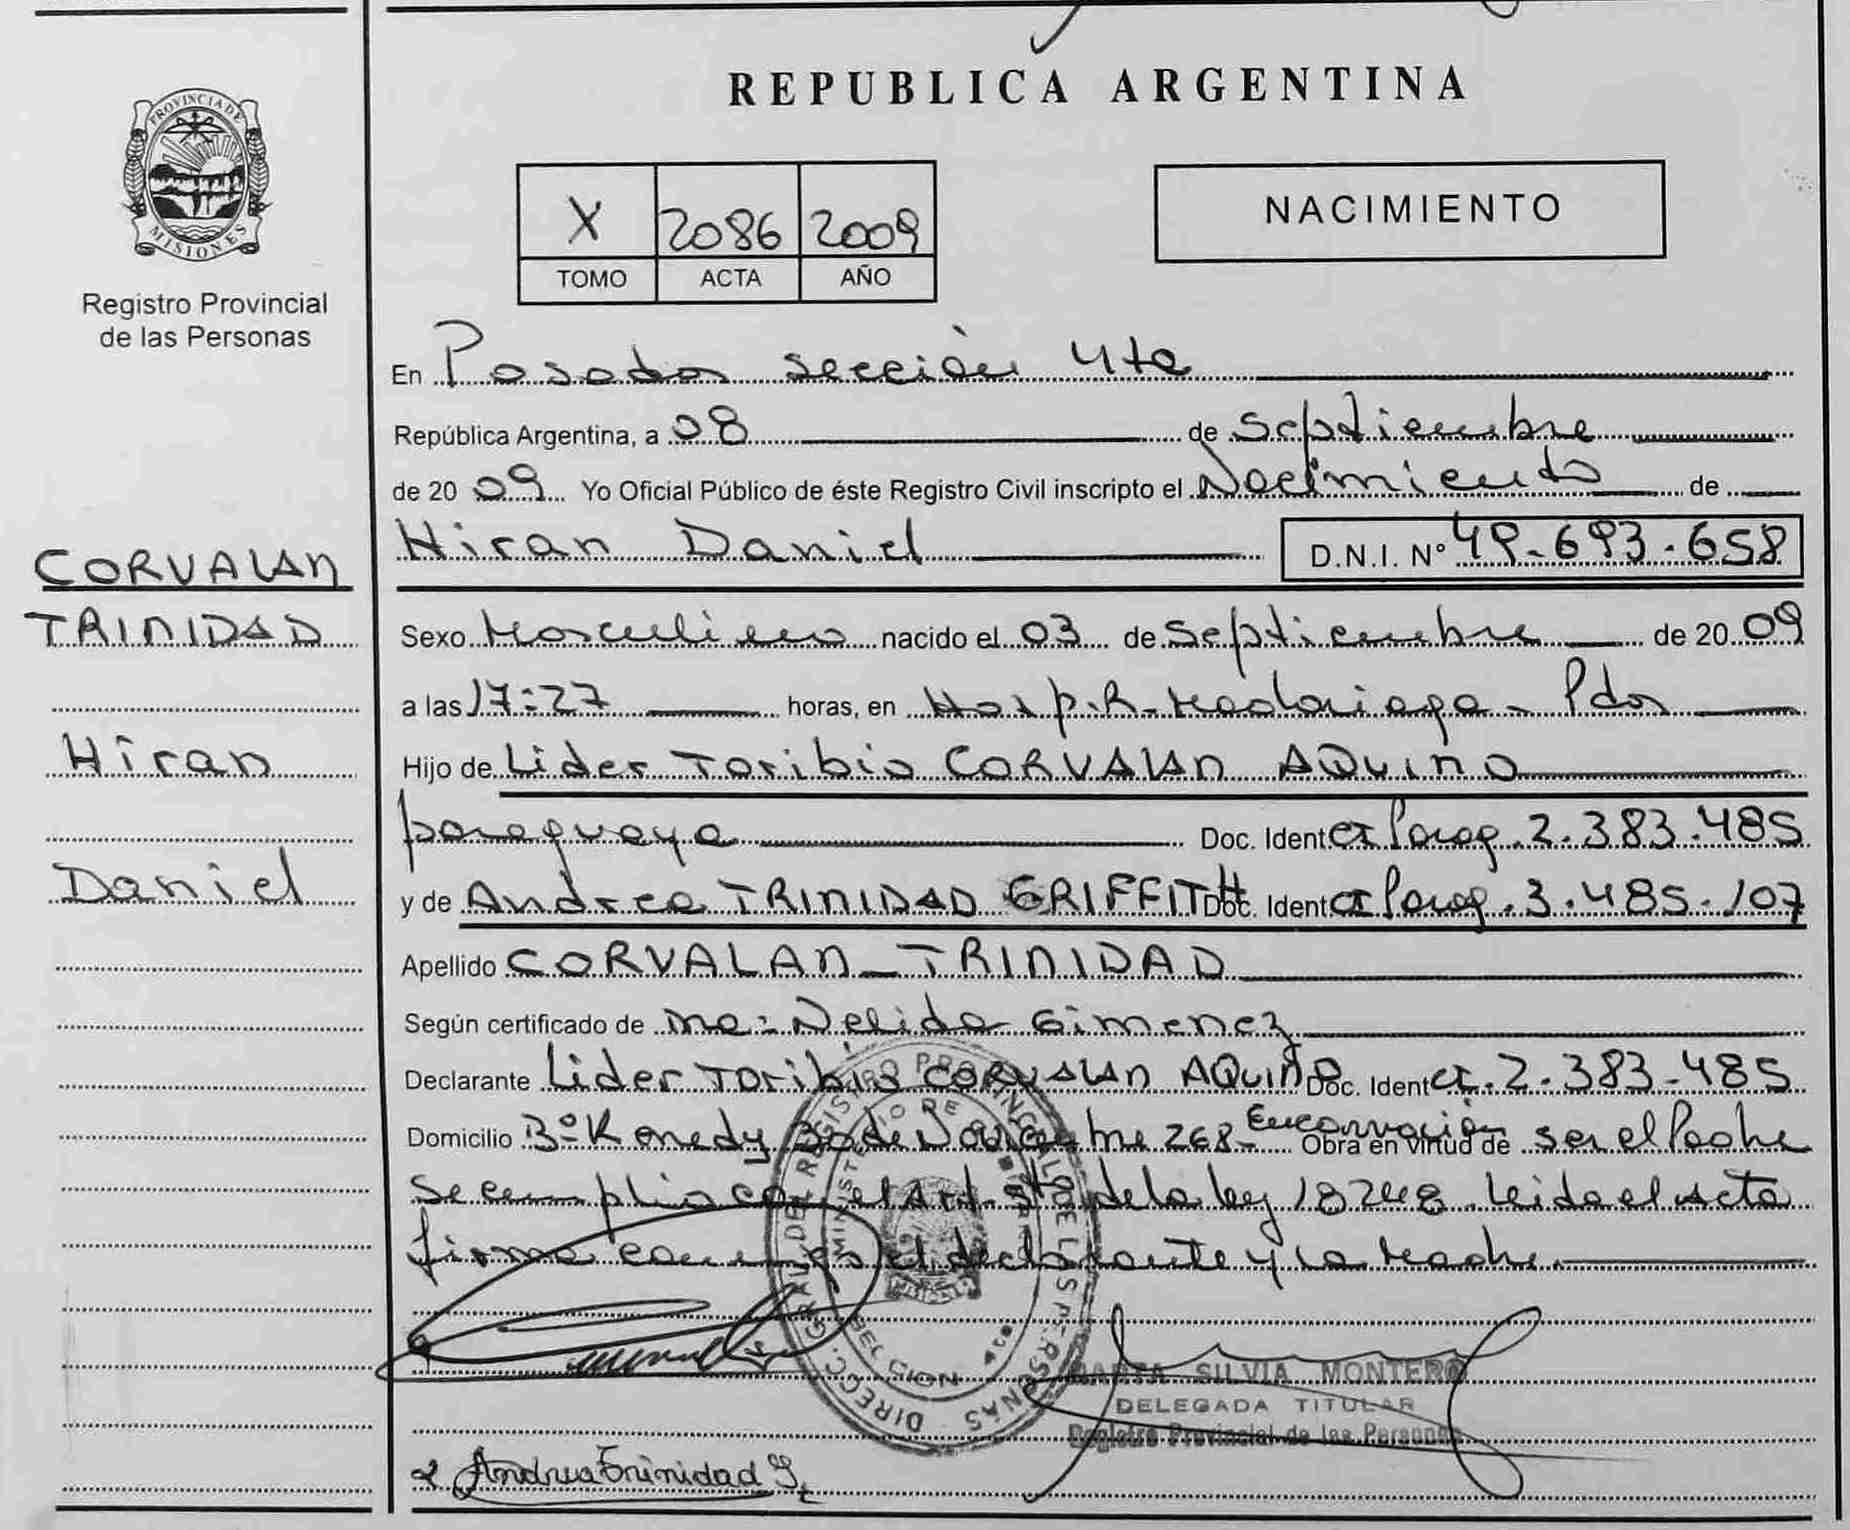 REPUBLICA ARGENTINA
PROVINCIA DE MISIONES
Registro Provincial
de las Personas
X 2086 2009
TOMO ACTA AÑO
NACIMIENTO
CORVALAN
TRINIDAD
Hiran
Daniel
En Posadas sección 4ta
República Argentina, a 08 de Septiembre
de 20 09 Yo Oficial Público de éste Registro Civil inscripto el Nacimiento de
Hiran Daniel D.N.I. Nº 49-693-658
Sexo Masculino nacido el 03 de Septiembre de 20 09
a las 17:27 horas, en Hosp. R. Madariaga - Pdas
Hijo de Lider Toribio CORVALAN AQUINO
paraguaya Doc. Ident CI Parag. 2.383.485
y de Andrea TRINIDAD GRIFFITH Doc. Ident CI Parag. 3.485.107
Apellido CORVALAN-TRINIDAD
Según certificado de Nelida Gimenez
Declarante Lider Toribio CORVALAN AQUINO Doc. Ident CI. 2-383-485
Domicilio Bº Kenedy 30 de Noviembre 268- Encarnación Obra en virtud de ser el Padre
Se cumplio con el Art. 5to de la ley 18248. Leida el Acta
firma conmigo el declarante y la Madre.
DIRECC. GRAL. DEL REGISTRO PROVINCIAL DE LAS PERSONAS
MINISTERIO DE
MARTA SILVIA MONTERO
DELEGADA TITULAR
Registro Provincial de las Personas
Andrea Trinidad G.